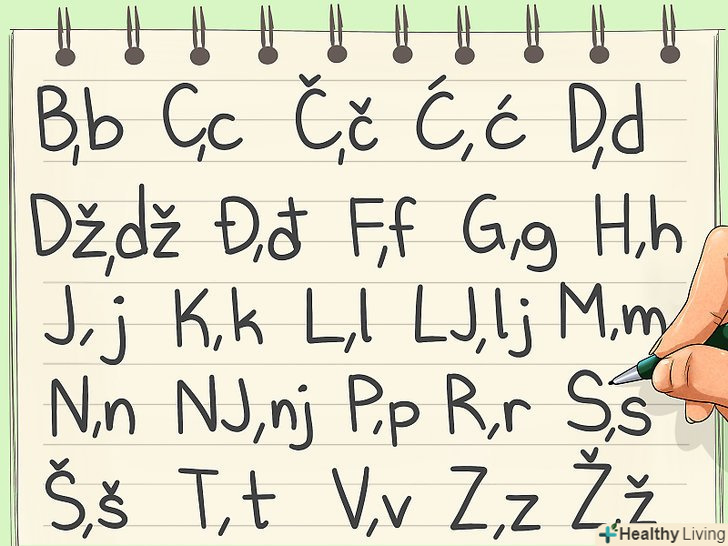 B,b C,c Č,č Ć,ć D,d
Dž,dž Đ,đ F,f G,g H,h
J,j K,k L,l LJ,lj M,m
N,n NJ,nj P,p R,r S,s
Š,š T,t V,v Z,z Ž,ž
Healthy Living